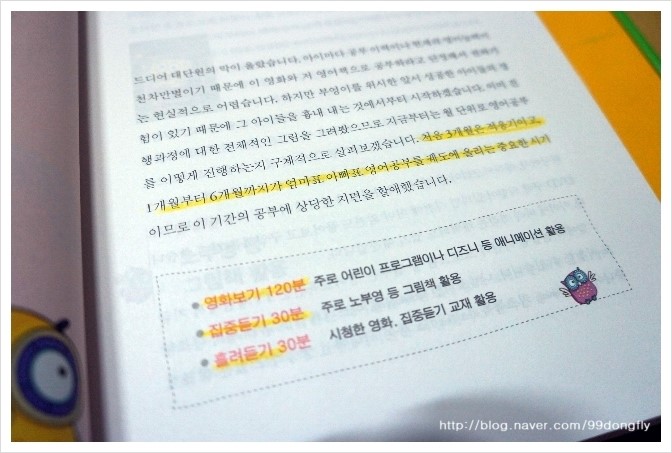 드디어 대단원의 막이 올랐습니다. 아이마다 공부 이력이나 현재의 영어실력이
천차만별이기 때문에 이 영화와 저 영어책으로 공부하라고 단정해서 말하기
는 현실적으로 어렵습니다. 하지만 부엉이를 위시한 앞서 성공한 아이들의 경
험이 있기 때문에 그 아이들을 흉내 내는 것에서부터 시작하겠습니다. 이미 진
행과정에 대한 전체적인 그림을 그려봤으므로 지금부터는 월 단위로 영어공부
를 어떻게 진행하는지 구체적으로 살펴보겠습니다. 처음 3개월은 적응기이고,
1개월부터 6개월까지가 엄마표 아빠표 영어공부를 궤도에 올리는 중요한 시기
이므로 이 기간의 공부에 상당한 지면을 할애했습니다.
● 영화보기 120분 주로 어린이 프로그램이나 디즈니 등 애니메이션 활용
● 집중듣기 30분 주로 노부영 등 그림책 활용
● 흘려듣기 30분 시청한 영화, 집중듣기 교재 활용
http://blog.naver.com/99dongfly